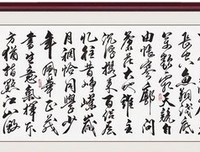 長空魚翔淺底
萬類霜天競自
由悵寥廓問
蒼茫大地誰主
沉浮攜來
憶往昔崢嶸歲
月稠恰同學少
年風華正茂
書生意氣揮斥
方遒指點江山激